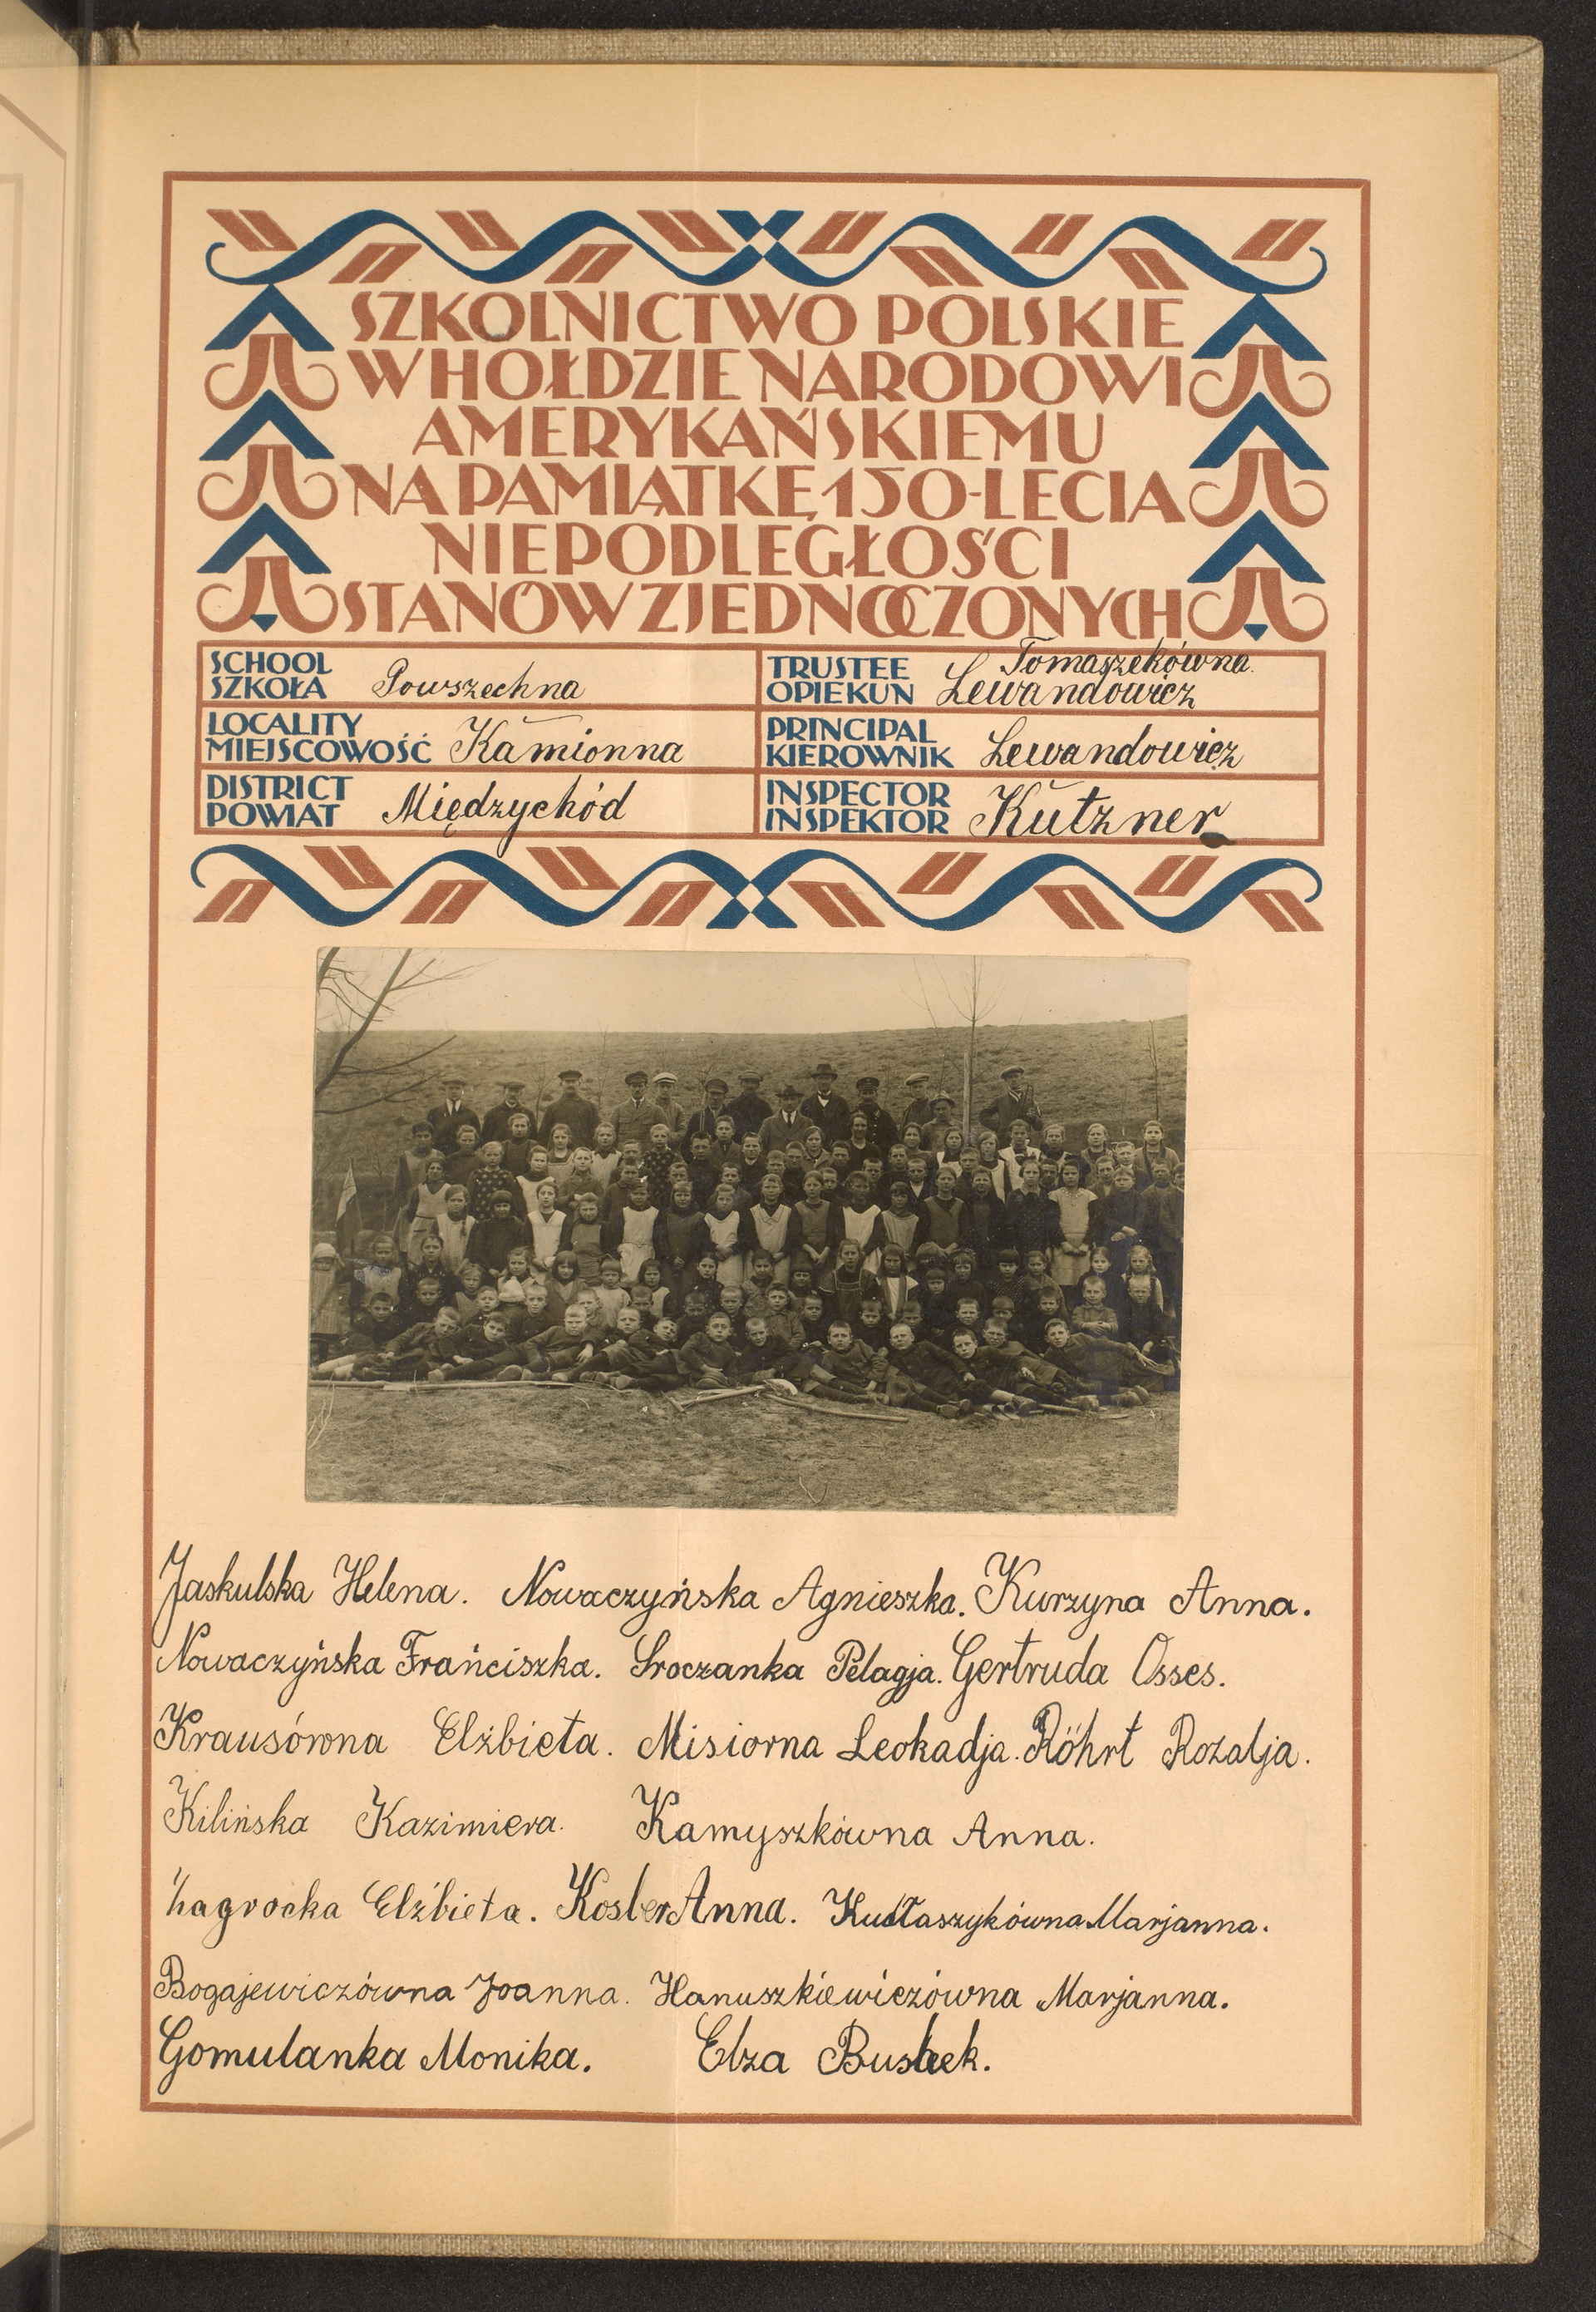 SZKOLNICTWO POLSKIE
W HOŁDZIE NARODOWI
AMERYKAŃSKIEMU
NA PAMIĄTKĘ 150-LECIA
NIEPODLEGŁOŚCI
STANÓW ZJEDNOCZONYCH
SCHOOL
SZKOŁA Powszechna
TRUSTEE Tomaszekówna
OPIEKUN Lewandowicz
LOCALITY
MIEJSCOWOŚĆ Kamionna
PRINCIPAL
KIEROWNIK Lewandowicz
DISTRICT
POWIAT Międzychód
INSPECTOR
INSPEKTOR Kutzner
Jaskulska Helena. Nowaczyńska Agnieszka. Kurzyna Anna.
Nowaczyńska Frańciszka. Sroczanka Pelagja. Gertruda Osses.
Krausówna Elżbieta. Misiorna Leokadja. Röhrt Rozalja.
Kilińska Kazimiera. Kamyszkówna Anna.
Zagrocka Elżbieta. Kosler Anna. Kudłaszykówna Marjanna.
Bogajewiczówna Joanna. Hanuszkiewiczówna Marjanna.
Gomulanka Monika. Elza